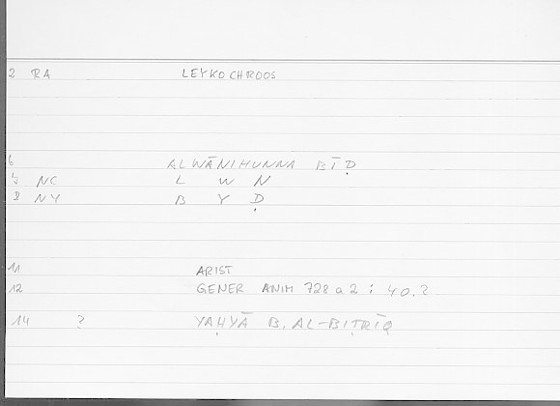 2 RA LEYKOCHROOS
6 ALWĀNIHUNNA BĪḌ
7 NC L W N
8 NY B Y Ḍ
11 ARIST
12 GENER ANIM 728 a 2 : 40.2
14 ? YAḤYĀ B. AL-BIṬRĪQ